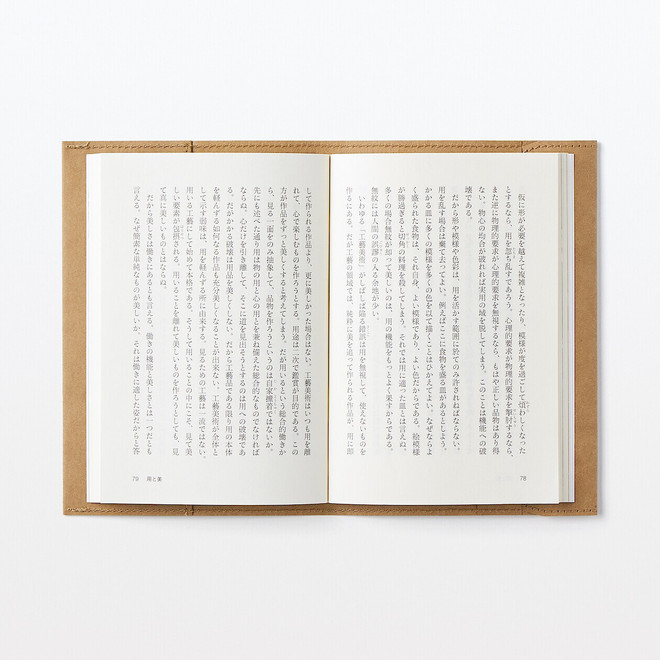 仮に形が必要を越えて複雑となったり、模様が度を過ごして煩わしくなった
とするなら、用を忽ち乱すであろう。心理的要求が物理的要求を掣肘するなら、
また逆に物理的要求が心理的要求を無視するなら、もはや正しい品物はあり得
ない。物心の均合が破れれば実用の域を脱してしまう。このことは機能への破
壊である。
だから形や模様や色彩は、用を活かす範囲に於てのみ許されねばならない。
用を乱す場合は棄て去ってよい。例えばここに食物を盛る皿があるとしよう。
かかる皿に多くの模様を多くの色を以て描くことはひかえてよい。なぜならよ
く盛られた食物は、それ自身、よい模様であり、よい色だからである。絵模様
が勝過ぎると切角の料理を殺してしまう。それでは用に適った皿とは言えぬ。
多くの場合無紋が却って美しいのは、用の機能をもっとよく果すからである。
無紋には人間の誤謬の入る余地が少い。
いわゆる「工藝美術」がしばしば陥る錯誤は用を無視して、使えないものを
作るにある。だが工藝の領域では、純粋に美を追って作られる作品が、用に即
78
して作られる作品より、更に美しかった場合はない。工藝美術はいつも用を離
れて、心で楽しむものを作ろうとする。用途は二次で鑑賞が目的である。この
方が作品をずっと美しくすると考えてしまう。だが用いるという総合的働きか
ら、見る一面をのみ抽象して、品物を作ろうというのは自家撞着ではないか。
先にも述べた通り用は物の用と心の用とを兼ね備えた総合的なものでなければ
ならぬ。心だけを引き離して、そこに道を見出そうとするのは用への破壊であ
る。だがかかる破壊は用品を美しくしない。だから工藝品である限り用の本体
を軽んずる如何なる作品も充分美しくなることが出来ない。工藝美術が全体と
して示す弱味は、用を軽んずる所に由来する。見るための工藝は一流ではない。
用いる工藝にして始めて本格である。そうして用いることの中にこそ、見て美
しい要素が包摂される。用いることを離れて美しいものを作ろうとしても、見
て真に美しいものとはならぬ。
だから美しさは働きにあるとも言える。働きの機能と美しさとは一つだとも
言える。なぜ簡素な単純なものが美しいか、それは働きに適した姿だからと答
79 用と美